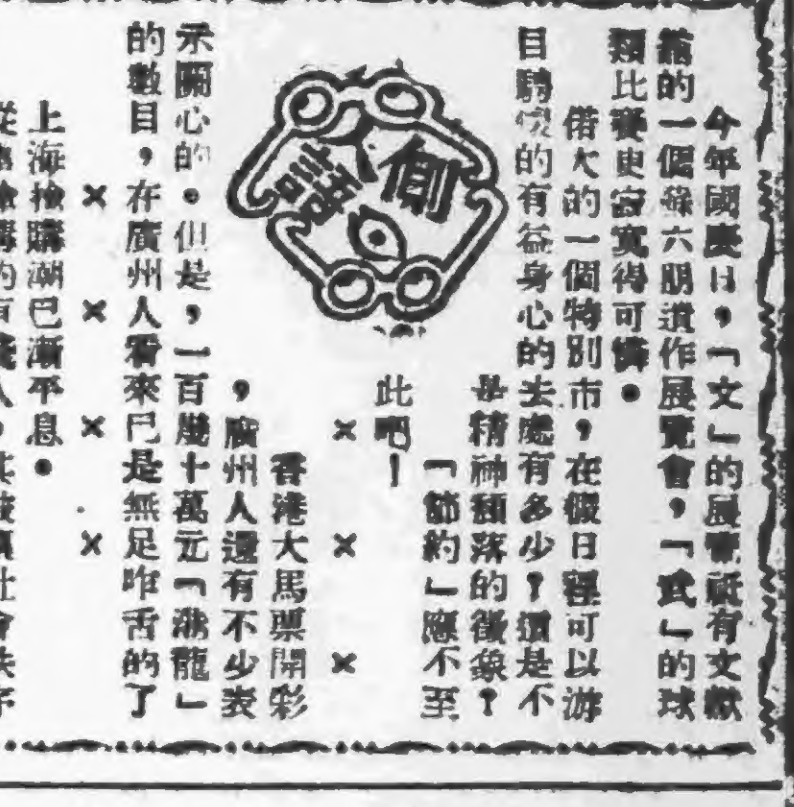 今年國慶日，「文」的展覽祇有文獻
館的一個綠六朋遺作展覽會，「武」的球
類比賽更寂寞得可憐。
偌大的一個特別市，在假日裡可以游
目騁懷的有益身心的去處有多少？這是不
是精神頹落的徵象？
「節約」應不至
此吧！
×　×　×
香港大馬票開彩
，廣州人還有不少表
示關心的。但是，一百幾十萬元「潮龍」
的數目，在廣州人看來已是無足咋舌的了
×　×　×　×
上海搶購潮已漸平息。
側人語